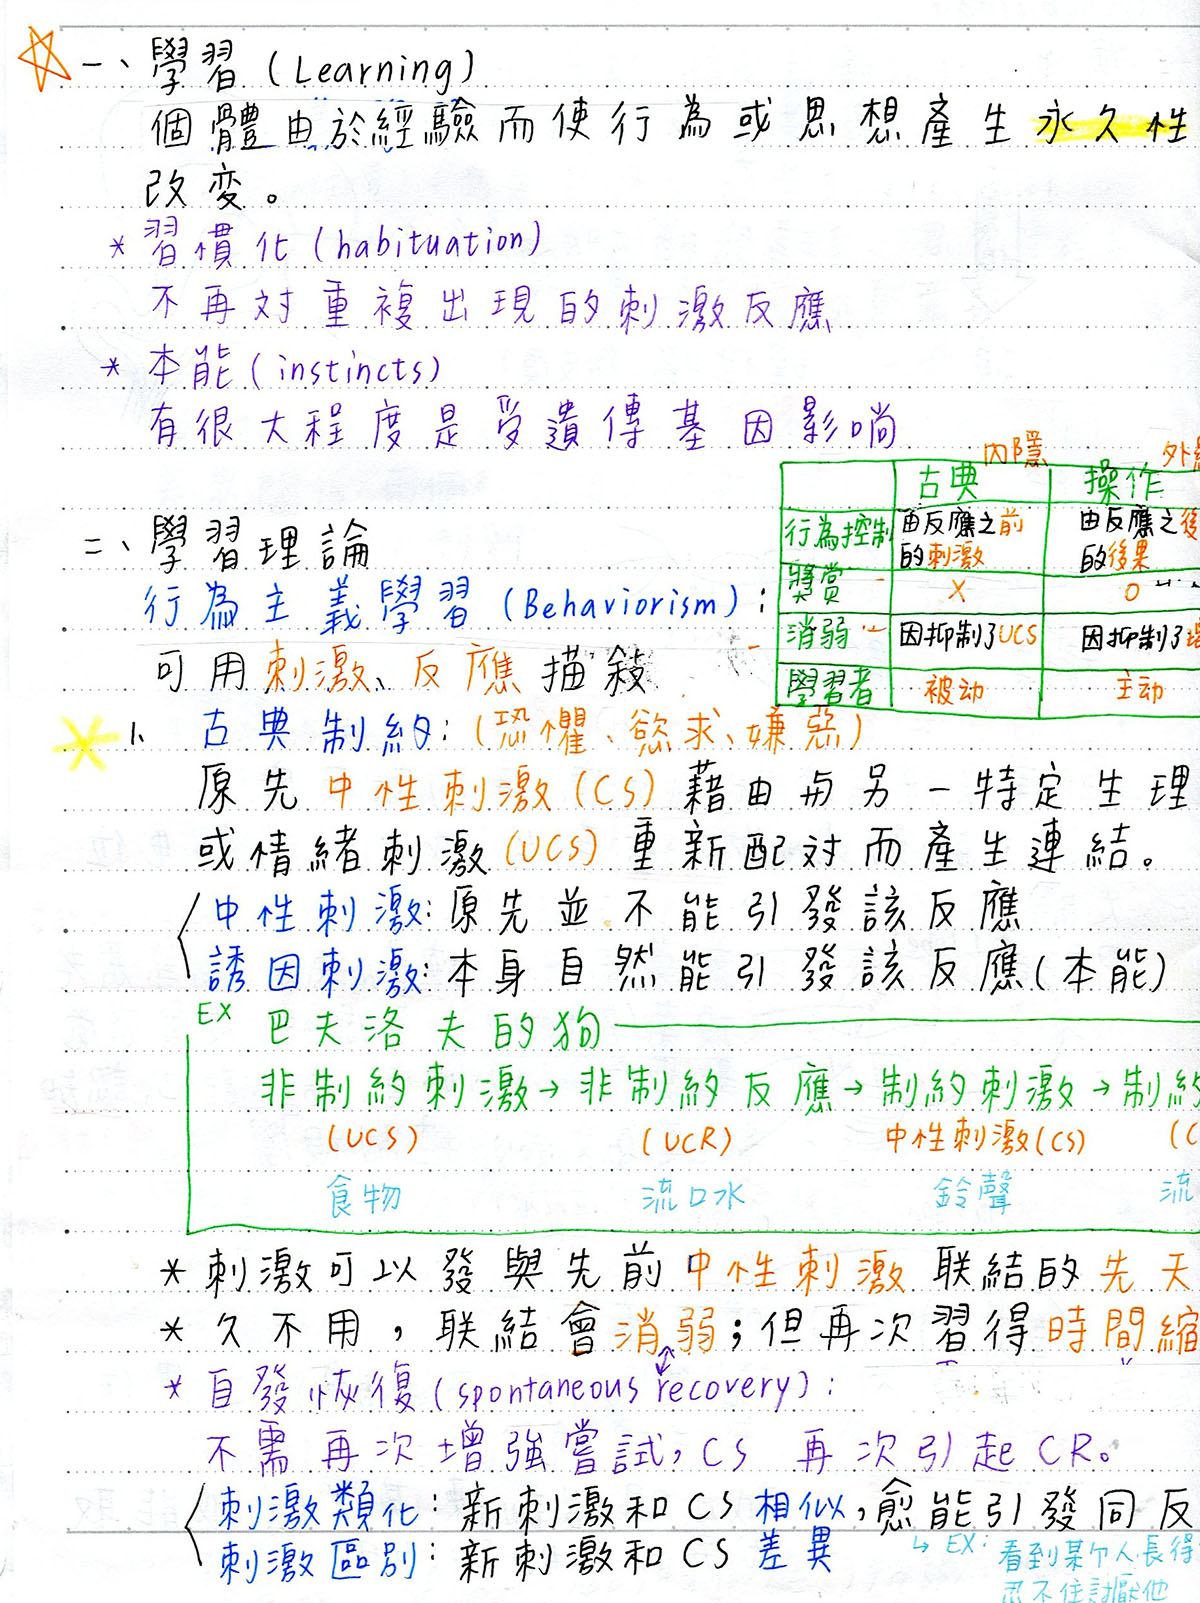 一、學習(Learning)
個體由於經驗而使行為或思想產生永久性
改变。
*習慣化(habituation)
不再对重複出現的刺激反應
*本能(instincts)
有很大程度是受遺傳基因影响
內隱
古典 操作
行為控制 由反應之前的刺激 由反應之後的後果
獎賞 X O
消弱 因抑制了UCS 因抑制了
學習者 被动 主动
二、學習理論
行為主義學習(Behaviorism):
可用刺激、反應描敍
1、古典制約:(恐懼、慾求、嫌惡)
原先中性刺激(CS)藉由与另一特定生理
或情緒刺激(UCS)重新配对而產生連結。
中性刺激:原先並不能引發該反應
誘因刺激:本身自然能引發該反應(本能)
EX 巴夫洛夫的狗
非制約刺激→非制約反應→制約刺激→制約
(UCS) (UCR) 中性刺激(CS) (C
食物 流口水 鈴聲 流
*刺激可以發與先前中性刺激联結的先天
*久不用,联結會消弱;但再次習得時間縮
*自發恢復(spontaneous recovery):
不需再次增強嘗試,CS 再次引起CR。
刺激類化:新刺激和CS相似,愈能引發同反
刺激區別:新刺激和CS差異
↳ EX:看到某个人長得
忍不住討厭他